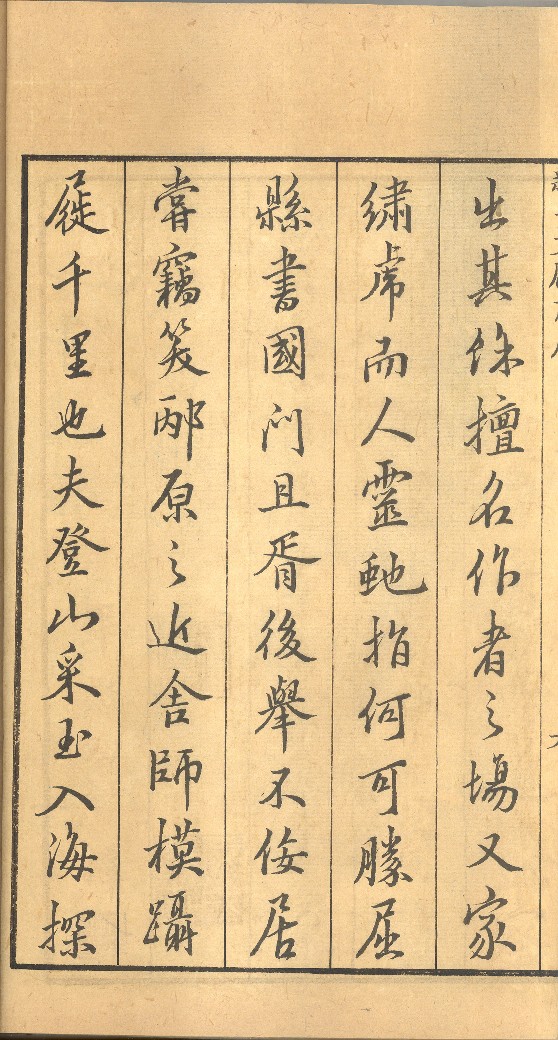 出其緒擅名作者之場又家
繡虎而人靈虵指何可勝屈
縣書國门且胥後舉不佞居
嘗竊笑邴原之近舍師模躡
屣千里也夫登山采玉入海探